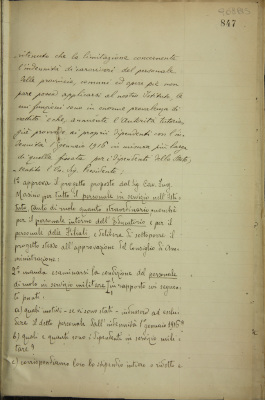 847
ritenendo che la limitazione concernente
l'indennità di caroviveri del personale
delle provincie, comuni ed opere pie non
pare possa applicarsi al nostro Istituto, le
cui funzioni sono in enorme prevalenza di
credito e che, anamente l'Autorità tutoria,
già provvide ai propri dipendenti con l'in-
dennità 1° gennaio 1918 in misura più larga
di quella fissata per i dipendenti dello Stato,
Udito l'On. Sig. Presidente;
1° approva il progetto proposto dal Sig. Cav. Ing.
Marino per tutto il personale in servizio nell'Isti-
tuto tanto di ruolo quanto straordinario nonché
per il personale interno dell'Esattoria e per il
personale delle Filiali, e delibera di sottoporre il
progetto stesso all'approvazione del Consiglio di Am-
ministrazione;
2° manda esaminarsi la condizione del personale
di ruolo in servizio militare, in rapporto ai seguen-
ti punti:
a) quali motivi - se vi sono stati - indussero ad esclu-
dere il detto personale dall'indennità 1° gennaio 1918?
b) quali e quanti sono i dipendenti in servizio mili-
tare?
c) corrispondiamo loro lo stipendio intiero o ridotto e